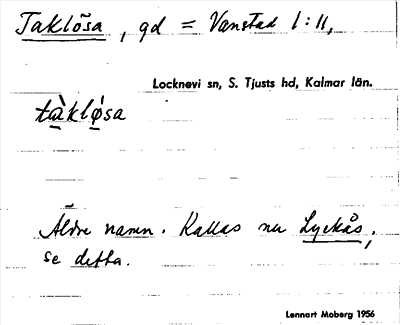 Taklösa, gd = Vanstad 1:11,
Locknevi sn, S. Tjusts hd, Kalmar län.
tàkløsa
Äldre namn. Kallas nu Lyckås,
se detta.
Lennart Moberg 1956